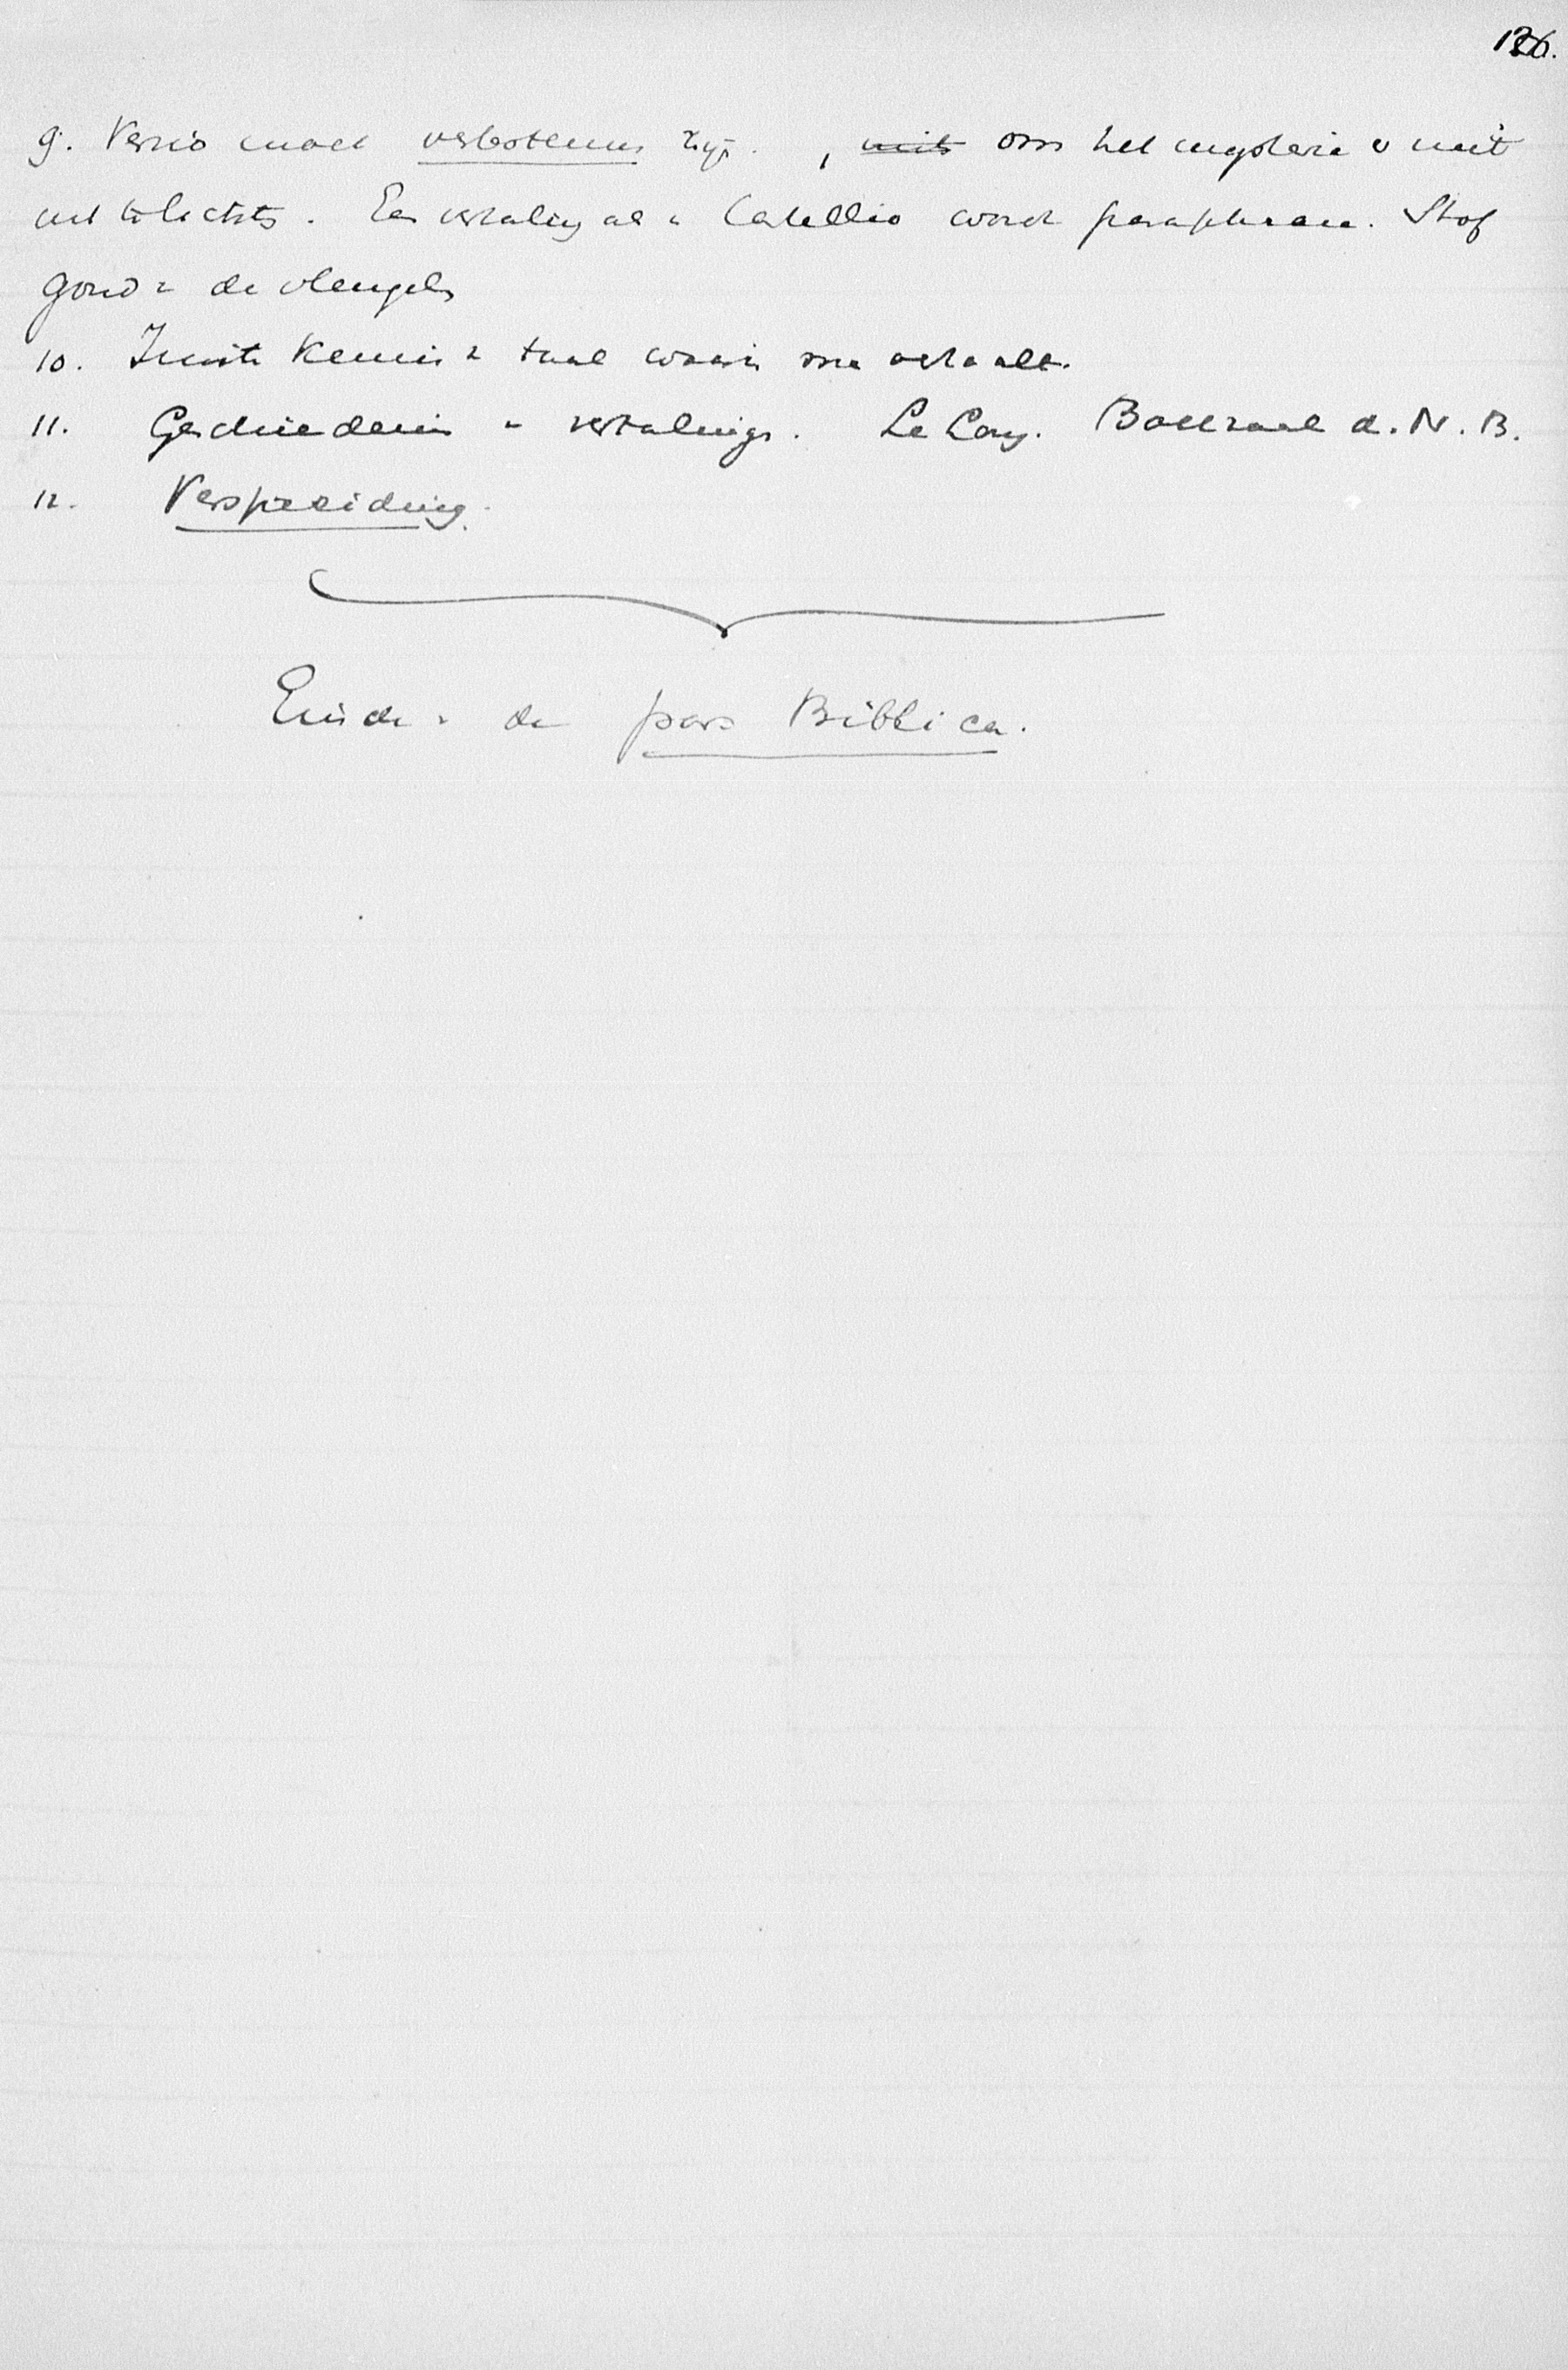 126.
9. Versio moet verbotenus zijn. , ~~mits~~ om het mysterie v niet
uit te lichten. Een vertaling als v Castellio wordt paraphrase. Stof
goud v de vleugels
10. Juiste kennis v taal waarin men vertaalt.
11. Geschiedenis v vertalingen. Le Long. Boekzaal d. N. B.
12. Verspreiding.
Einde v de pars Biblica.